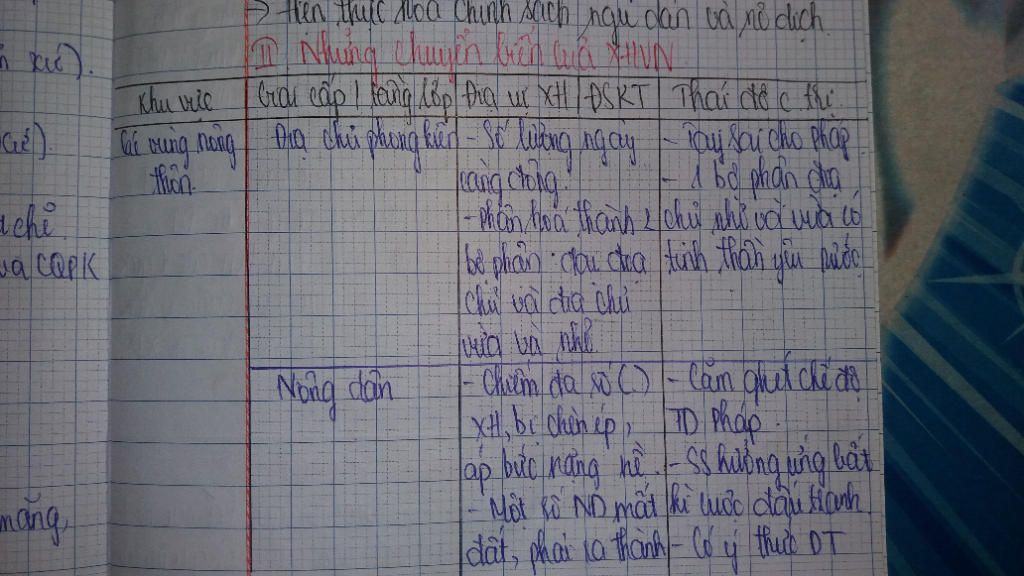 → Hiện thực hoá chính sách ngu dân và nô dịch.
II Những chuyển biến của XHVN
Khu vực | Giai cấp / tầng lớp | Địa vị XH | ĐSKT | Thái độ c trị.
Các vùng nông thôn. | Địa chủ phong kiến | - Số lượng ngày | - Tay sai cho Pháp
càng đông. | - 1 bộ phận địa
- Phân hoá thành 2 | chủ nhỏ và vừa có
bộ phận: đại địa | tinh thần yêu nước
chủ và địa chủ
vừa và nhỏ
Nông dân | - Chiếm đa số () | - Căm ghét chế độ
XH, bị chèn ép, | TD Pháp.
áp bức nặng nề. | - SS hưởng ứng bất
- Một số ND mất | kì cuộc đấu tranh
đất, phải ra thành | - Có ý thức DT
xứ).
chế
và CQPK
măng,